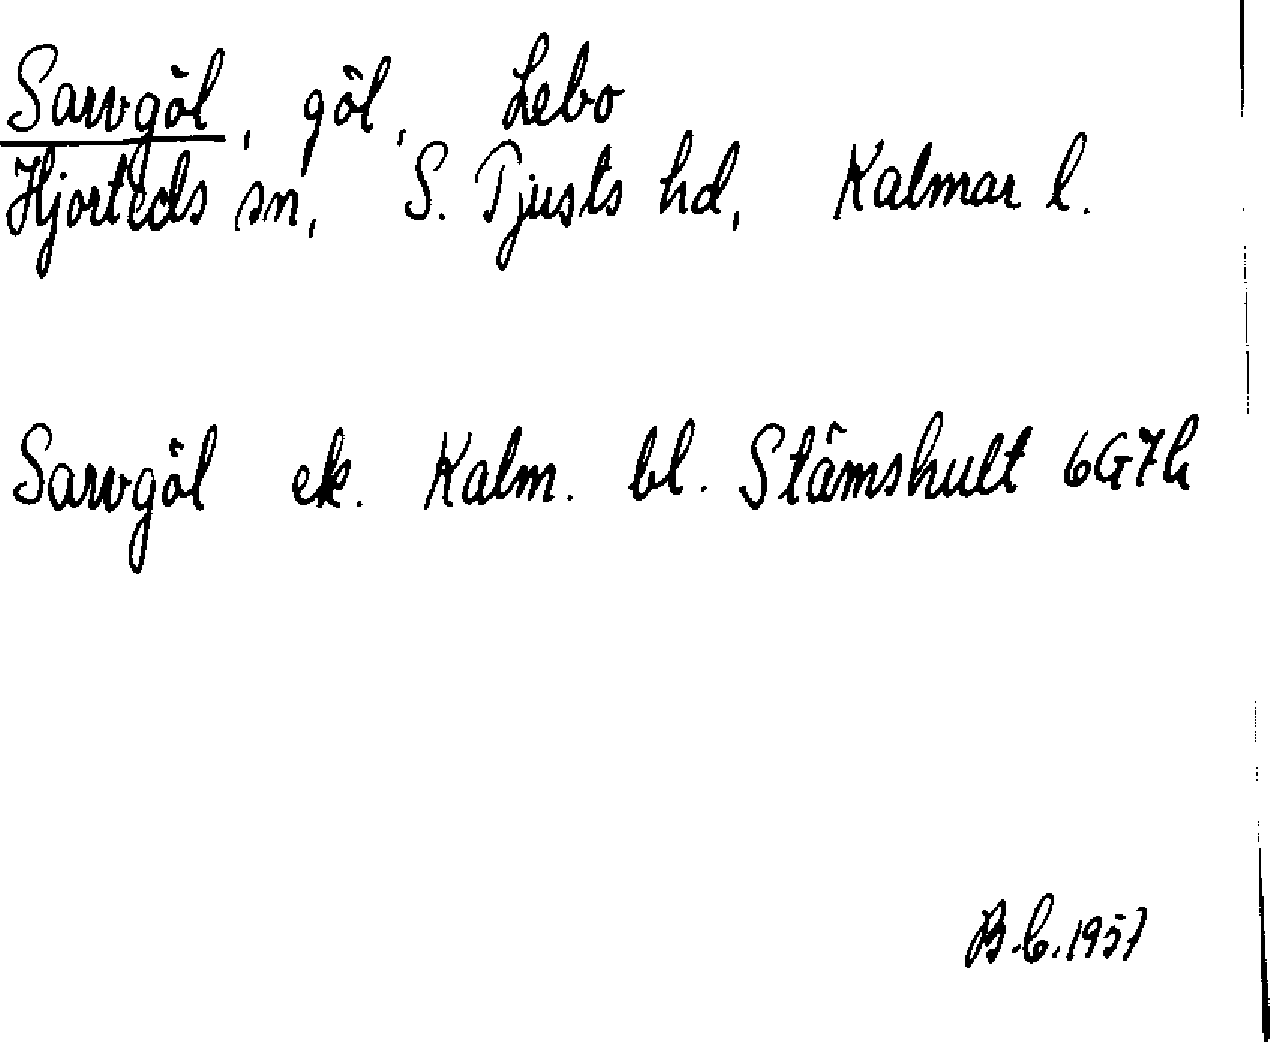 Sarvgöl, göl, Lebo
Hjorteds sn, S. Tjusts hd, Kalmar l.
Sarvgöl ek. Kalm. bl. Stämshult 6G7h
B.C. 1957